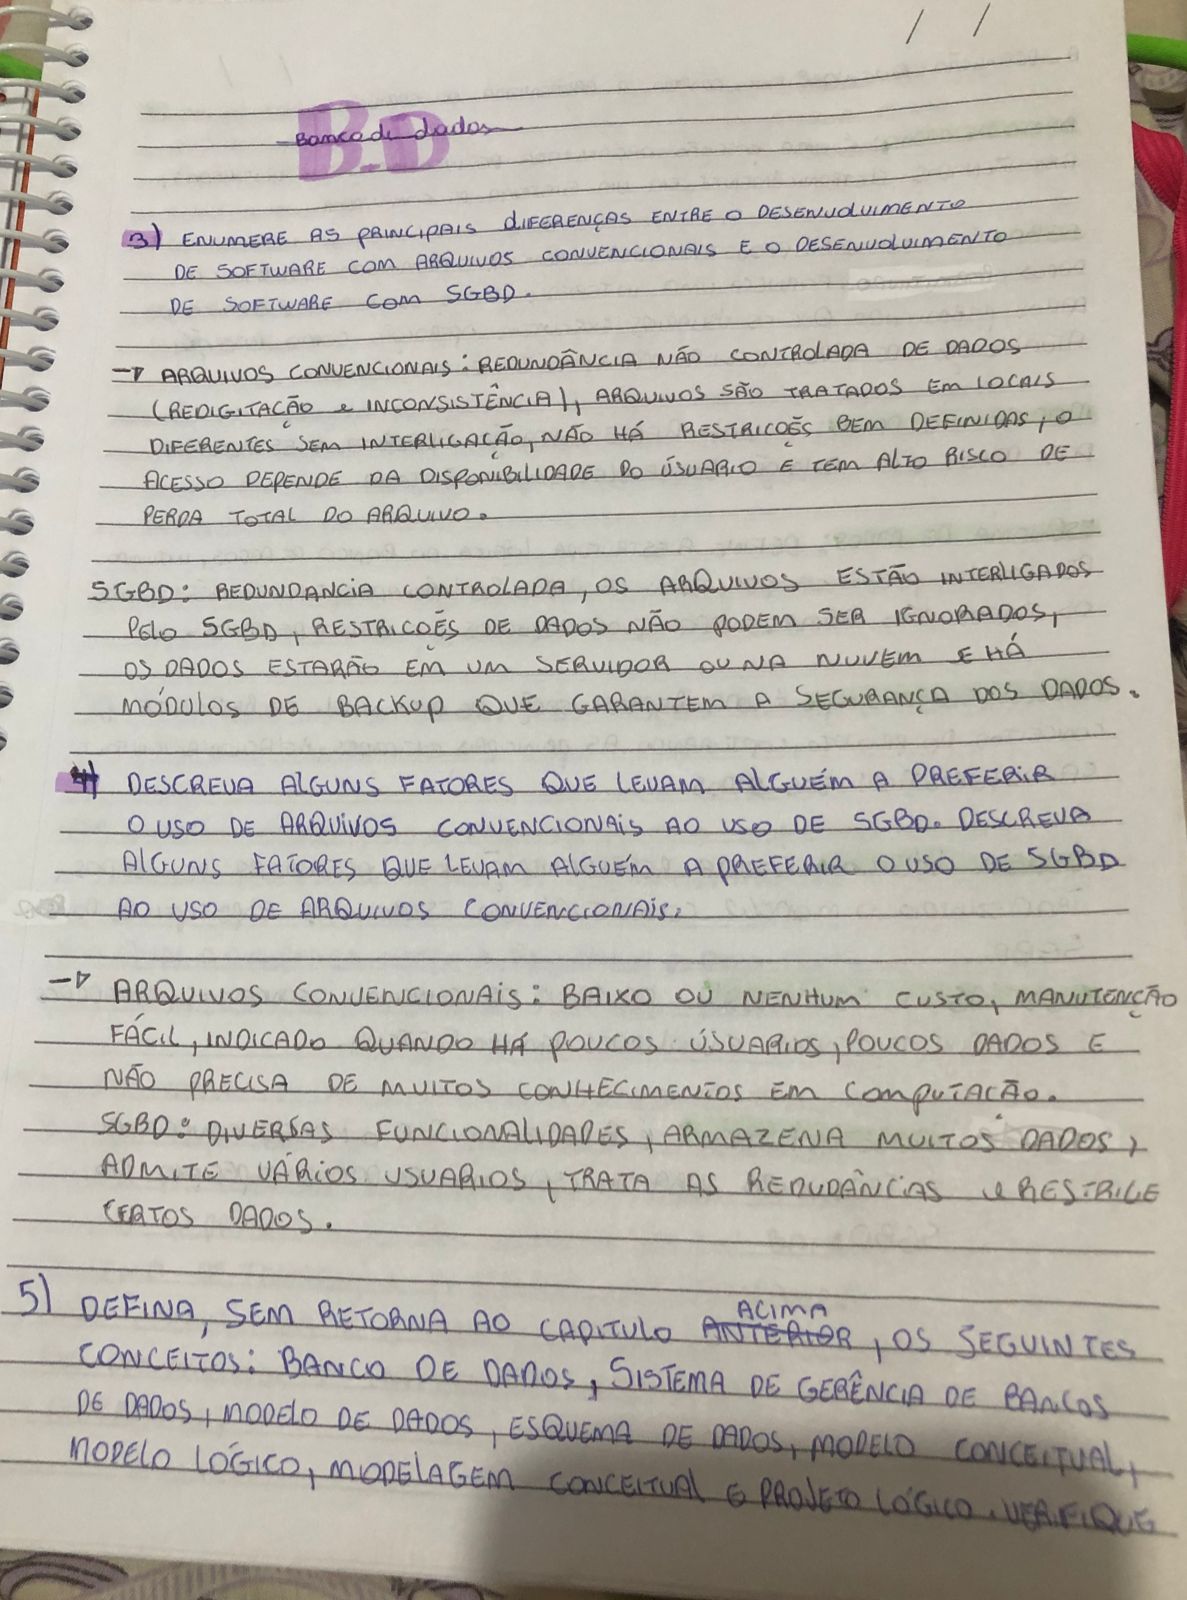 / /
B.D
Banco de dados
3) ENUMERE AS PRINCIPAIS DIFERENÇAS ENTRE O DESENVOLVIMENTO
DE SOFTWARE COM ARQUIVOS CONVENCIONAIS E O DESENVOLVIMENTO
DE SOFTWARE COM SGBD.
→ ARQUIVOS CONVENCIONAIS: REDUNDÂNCIA NÃO CONTROLADA DE DADOS
(REDIGITAÇÃO e INCONSISTÊNCIA), ARQUIVOS SÃO TRATADOS EM LOCAIS
DIFERENTES SEM INTERLIGAÇÃO, NÃO HÁ RESTRIÇÕES BEM DEFINIDAS, O
ACESSO DEPENDE DA DISPONIBILIDADE DO ÚSUARIO E TEM ALTO RISCO DE
PERDA TOTAL DO ARQUIVO.
SGBD: REDUNDANCIA CONTROLADA, OS ARQUIVOS ESTÃO INTERLIGADOS
PELO SGBD, RESTRIÇÕES DE DADOS NÃO PODEM SER IGNORADOS,
OS DADOS ESTARÃO EM UM SERVIDOR OU NA NUVEM E HÁ
MÓDULOS DE BACKUP QUE GARANTEM A SEGURANÇA DOS DADOS.
4) DESCREVA ALGUNS FATORES QUE LEVAM ALGUÉM A PREFERIR
O USO DE ARQUIVOS CONVENCIONAIS AO USO DE SGBD. DESCREVA
ALGUNS FATORES QUE LEVAM ALGUÉM A PREFERIR O USO DE SGBD
AO USO DE ARQUIVOS CONVENCIONAIS.
→ ARQUIVOS CONVENCIONAIS: BAIXO OU NENHUM CUSTO, MANUTENÇÃO
FÁCIL, INDICADO QUANDO HÁ POUCOS ÚSUARIOS, POUCOS DADOS E
NÃO PRECISA DE MUITOS CONHECIMENTOS EM COMPUTAÇÃO.
SGBD: DIVERSAS FUNCIONALIDADES, ARMAZENA MUITOS DADOS,
ADMITE VÁRIOS USUARIOS, TRATA AS REDUDÂNCIAS e RESTRIGE
CERTOS DADOS.
5) DEFINA, SEM RETORNA AO CAPITULO ANTERIOR ACIMA, OS SEGUINTES
CONCEITOS: BANCO DE DADOS, SISTEMA DE GERÊNCIA DE BANCOS
DE DADOS, MODELO DE DADOS, ESQUEMA DE DADOS, MODELO CONCEITUAL,
MODELO LÓGICO, MODELAGEM CONCEITUAL E PROJETO LÓGICO. VERIFIQUE